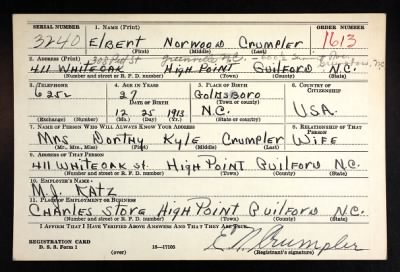 SERIAL NUMBER 1. NAME (Print) ORDER NUMBER
3240 ELBERT NORWOOD CRUMPLER 1613
(First) (Middle) (Last)
2. ADDRESS (Print) Greenville N.C.
411 WHITEOAK HIGH POINT GUILFORD N.C.
(Number and street or R. F. D. number) (Town) (County) (State)
3. TELEPHONE 4. AGE IN YEARS 5. PLACE OF BIRTH 6. COUNTRY OF CITIZENSHIP
6252 27 GOLDSBORO
DATE OF BIRTH (Town or county)
12 25 1913 N.C. USA.
(Exchange) (Number) (Mo.) (Day) (Yr.) (State or country)
7. NAME OF PERSON WHO WILL ALWAYS KNOW YOUR ADDRESS 8. RELATIONSHIP OF THAT PERSON
MRS DORTHY KYLE CRUMPLER WIFE
(Mr., Mrs., Miss) (First) (Middle) (Last)
9. ADDRESS OF THAT PERSON
411 WHITEOAK ST. HIGH POINT GUILFORD N.C.
(Number and street or R. F. D. number) (Town) (County) (State)
10. EMPLOYER'S NAME
M.J. KATZ
11. PLACE OF EMPLOYMENT OR BUSINESS
CHARLES STORE HIGH POINT GUILFORD N.C.
(Number and street or R. F. D. number) (Town) (County) (State)
I AFFIRM THAT I HAVE VERIFIED ABOVE ANSWERS AND THAT THEY ARE TRUE.
REGISTRATION CARD
D. S. S. Form 1 (over) 16—17105 E N Crumpler
(Registrant's signature)